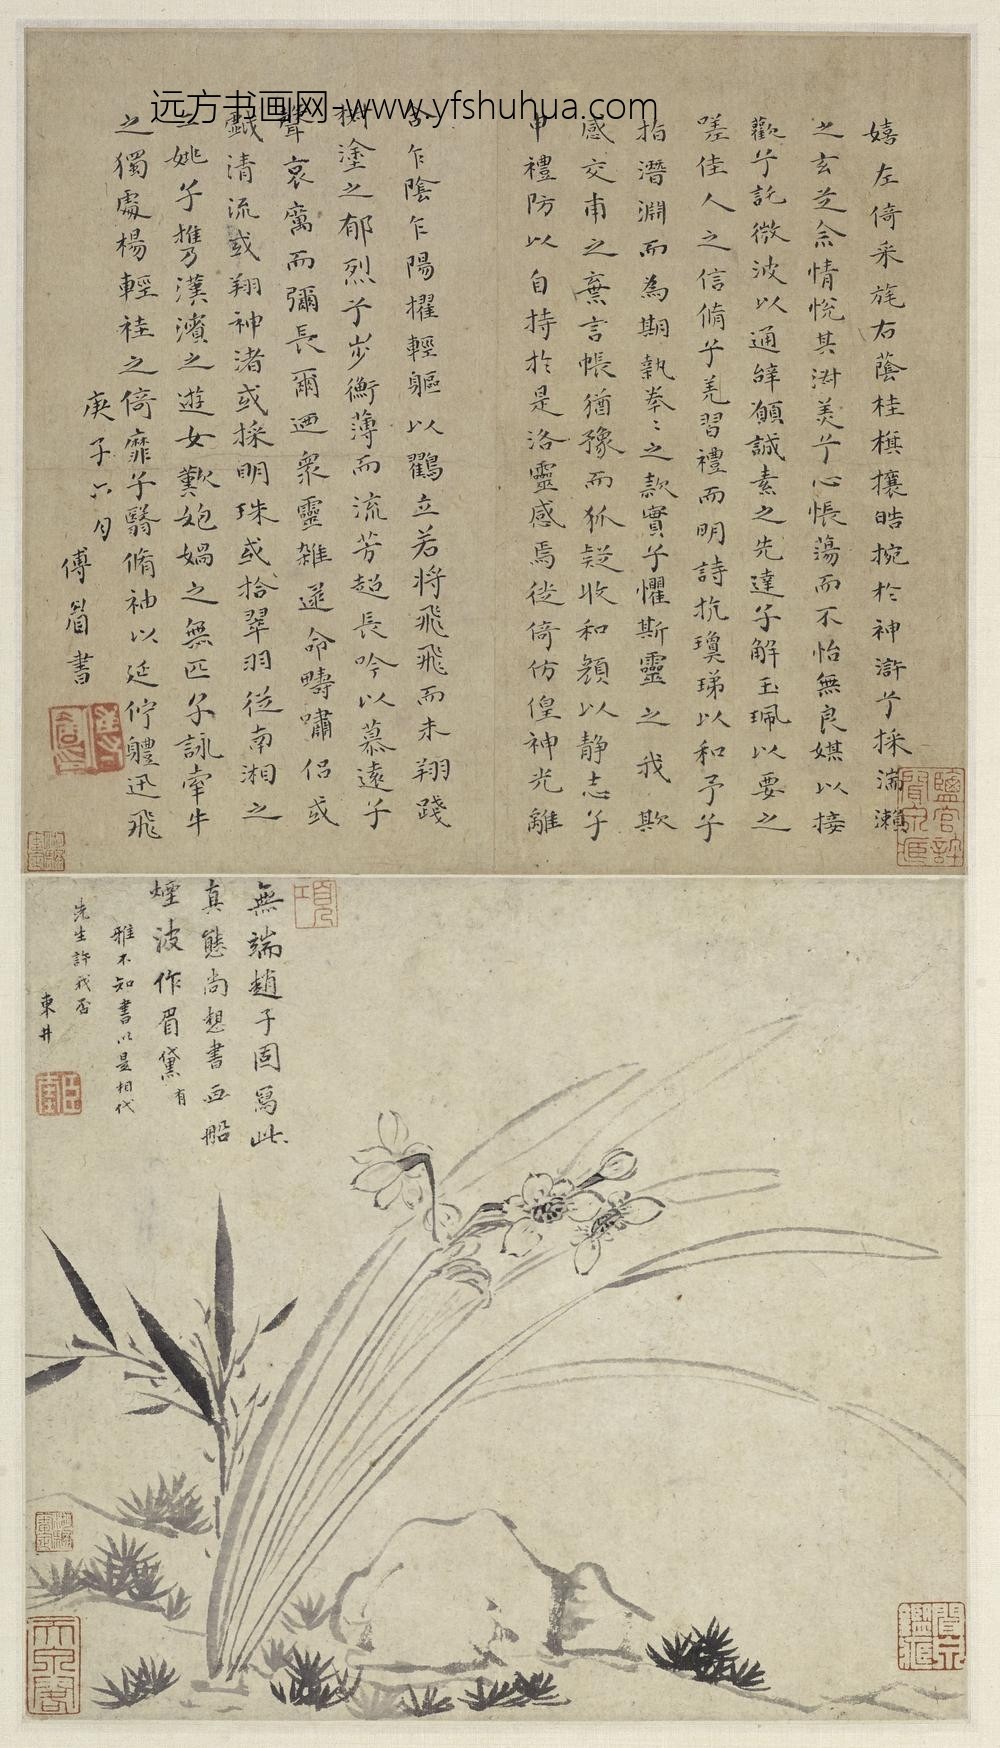 远方书画网-www.yfshuhua.com
嬉左倚采旄右蔭桂旗攘皓捥於神滸兮採湍瀨
之玄芝余情悅其淑美兮心悵蕩而不怡無良媒以接
歡兮託微波以通辭願誠素之先達兮解玉珮以要之
嗟佳人之信脩兮羌習禮而明詩抗瓊珶以和予兮
指潛淵而為期執拳〻之款實兮懼斯靈之我欺
感交甫之棄言悵猶豫而狐疑收和顏以靜志兮
申禮防以自持於是洛靈感焉徙倚仿偟神光離
合乍陰乍陽擢輕軀以鸛立若將飛飛而未翔踐
椒塗之郁烈兮步衡薄而流芳超長吟以慕遠兮
聲哀厲而彌長爾迺衆靈雜遝命疇嘯侶或
戲清流或翔神渚或採明珠或拾翠羽從南湘之
二姚兮攜漢濱之遊女歎匏媧之無匹兮詠牽牛
之獨處揚輕袿之倚靡兮翳脩袖以延佇軆迅飛
庚子六月
傅眉書
無端趙子固寫此
真態尚想書画船
煙波作眉黛有
雅不知書以是相代
先生許我否
東井